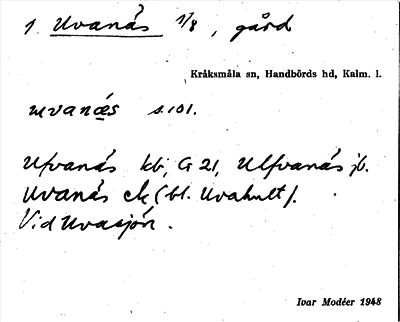 1. Uvanäs 1/8, gård
Kråksmåla sn, Handbörds hd, Kalm. l.
uvanæs s. 101.
Ufvanäs kb, G 21, Ulfvanäs jb.
Uvanäs ek (bl. Uvahult).
Vid Uvasjön.
Ivar Modéer 1948